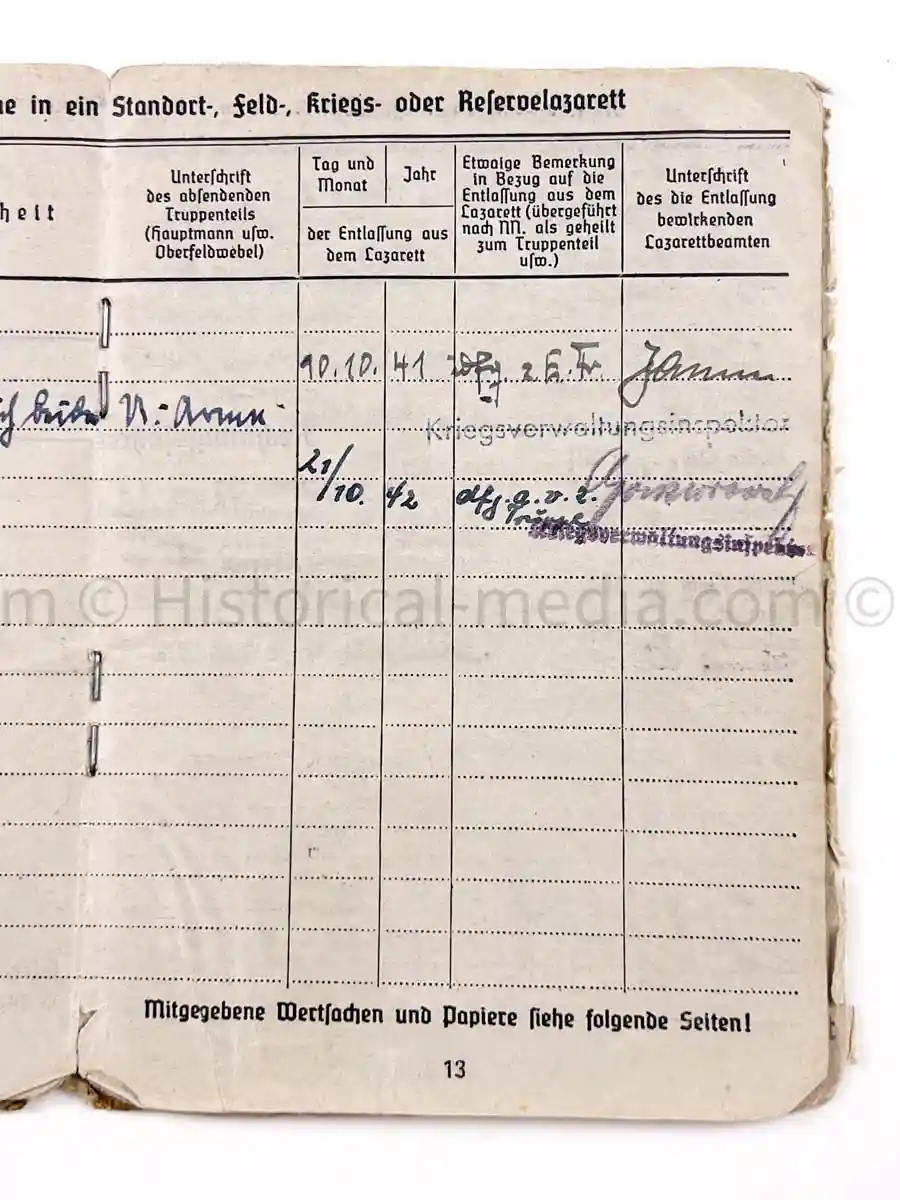 me in ein Standort-, Feld-, Kriegs- oder Reservelazarett
heit
Unterschrift
des absendenden
Truppenteils
(Hauptmann usw.
Oberfeldwebel)
Tag und
Monat
Jahr
der Entlassung aus
dem Lazarett
Etwaige Bemerkung
in Bezug auf die
Entlassung aus dem
Lazarett (übergeführt
nach NN. als geheilt
zum Truppenteil
usw.)
Unterschrift
des die Entlassung
bewirkenden
Lazarettbeamten
10.10. 41 z. E. Tr.
Kriegsverwaltungsinspektor
21/10. 42 dfg. a.v. z.
Truppe
Kriegsverwaltungsinspektor
om © Historical-media.com ©
Mitgegebene Wertsachen und Papiere siehe folgende Seiten!
13